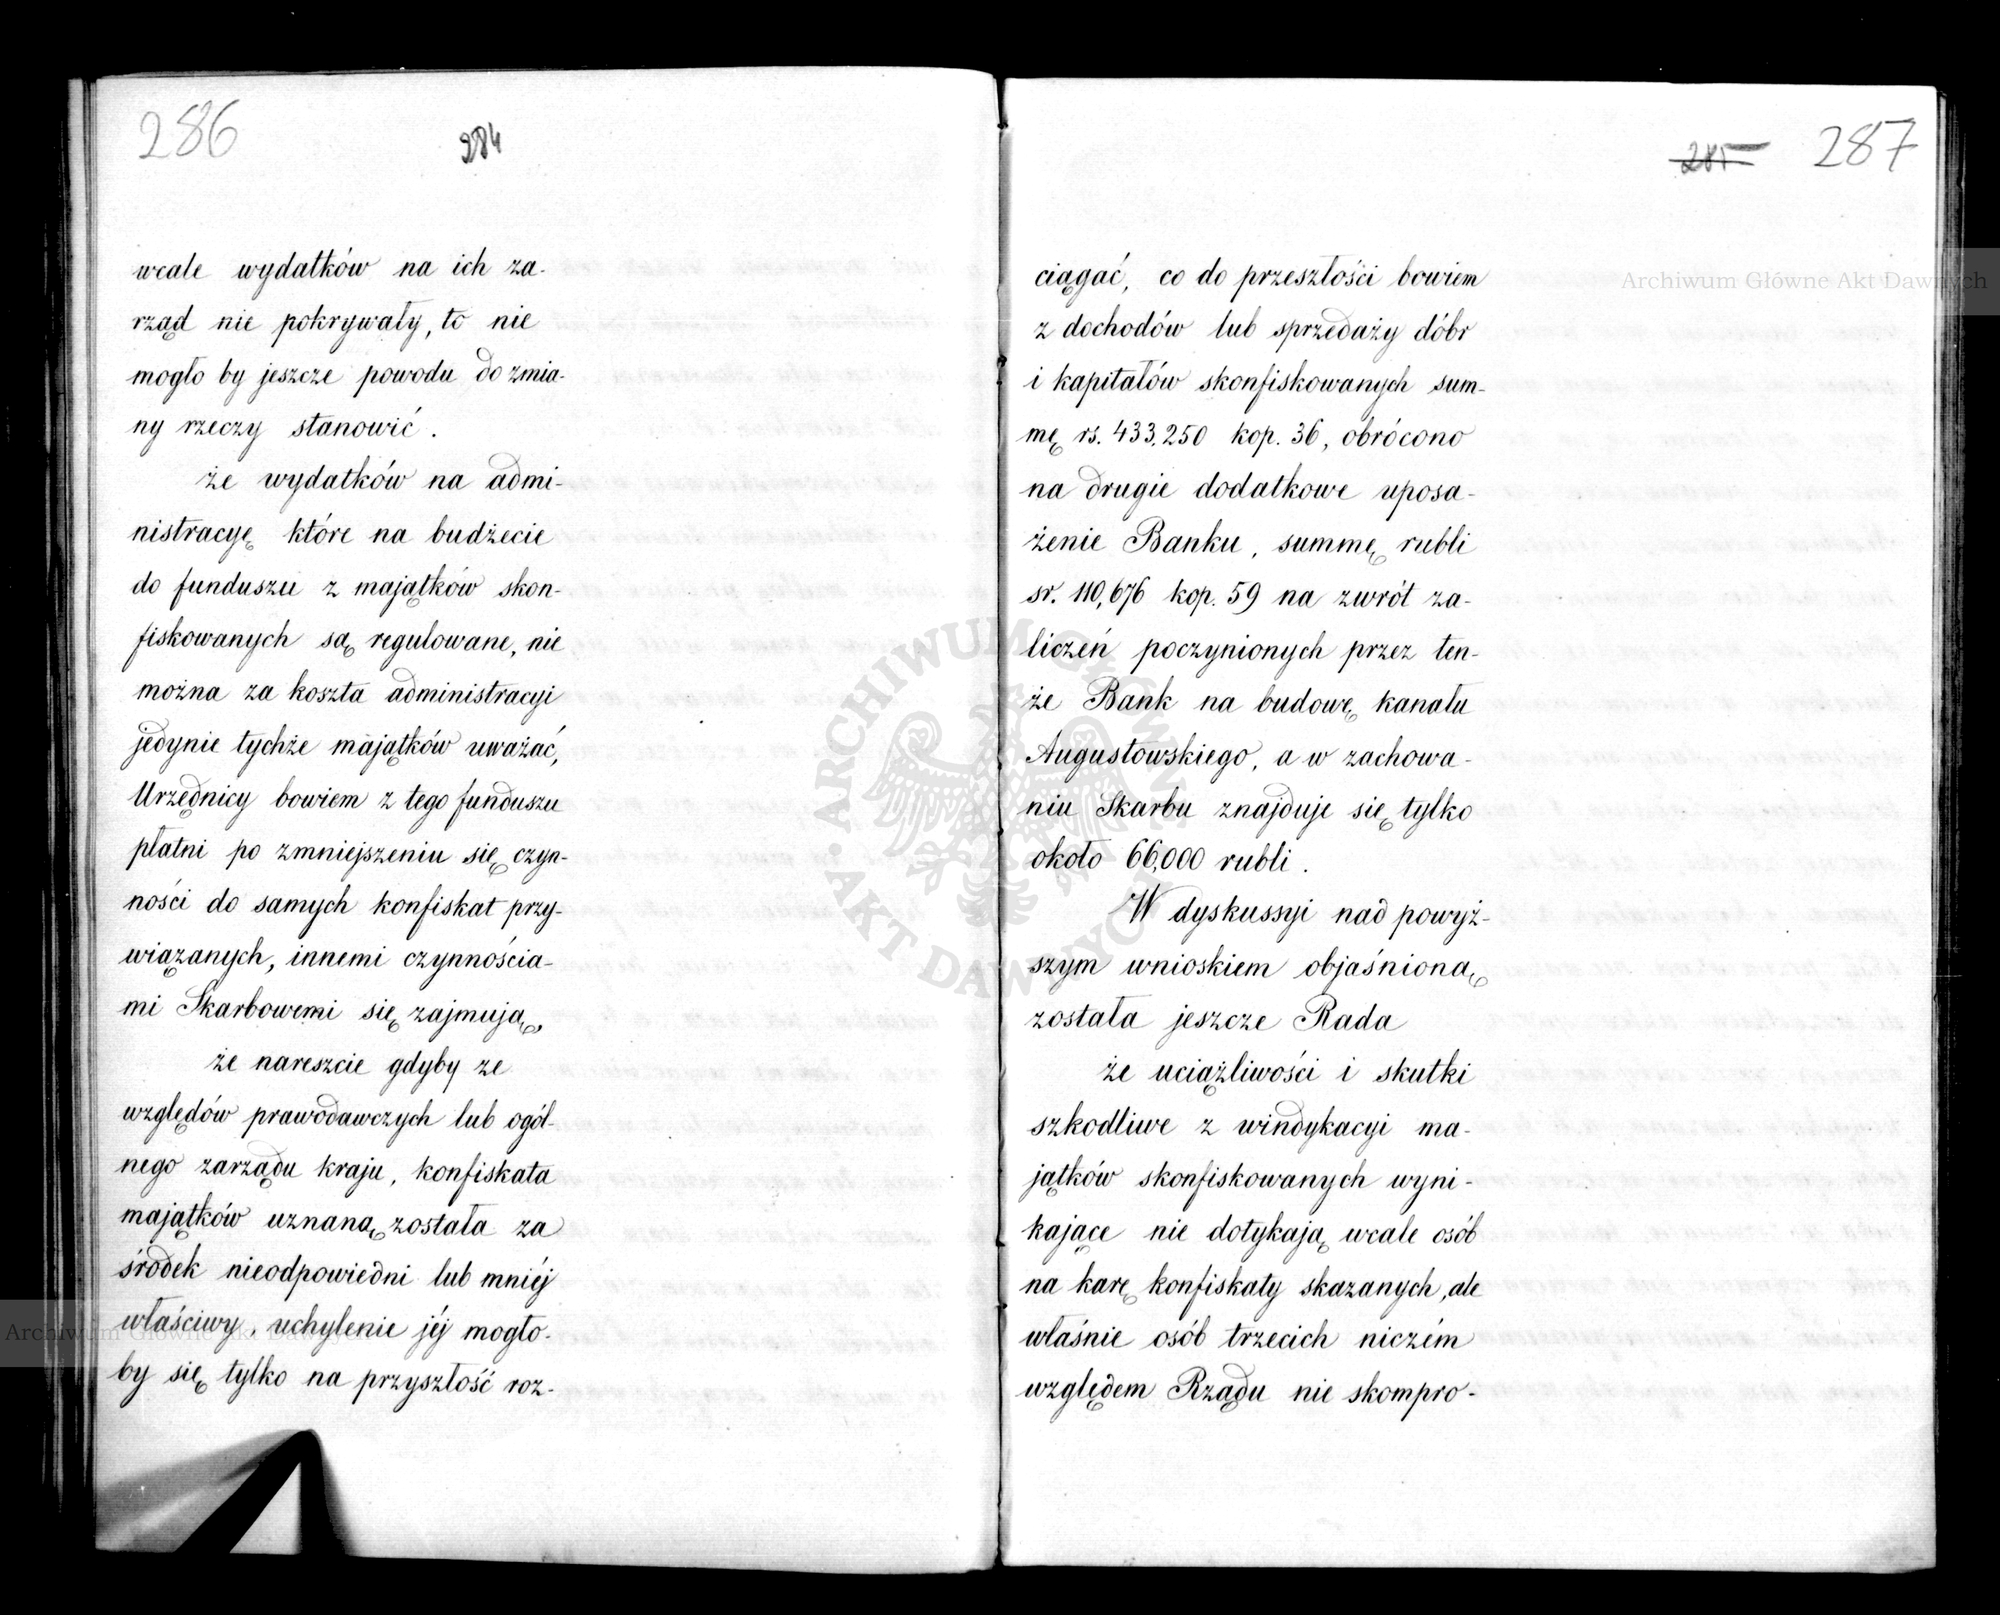 286
284
wcale wydatków na ich za-
rząd nie pokrywały, to nie
mogło by jeszcze powodu do zmia-
ny rzeczy stanowić.
że wydatków na admi-
nistracyę które na budżecie
do funduszu z majątków skon-
fiskowanych są regulowane, nie
można za koszta administracyi
jedynie tychże majątków uważać,
Urzędnicy bowiem z tego funduszu
płatni po zmniejszeniu się czyn-
ności do samych konfiskat przy-
wiązanych, innemi czynnościa-
mi Skarbowemi się zajmują,
że nareszcie gdyby ze
względów prawodawczych lub ogól-
nego zarządu kraju, konfiskata
majątków uznaną została za
środek nieodpowiedni lub mniéj
właściwy, uchylenie jéj mogło-
by się tylko na przyszłość roz-
285 287
ciągać, co do przeszłości bowiem
z dochodów lub sprzedaży dóbr
i kapitałów skonfiskowanych sum-
mę rs. 433,250 kop. 36, obrócono
na drugie dodatkowe uposa-
żenie Banku, summę rubli
sr. 110,676 kop. 59 na zwrót za-
liczeń poczynionych przez ten-
że Bank na budowę kanału
Augustowskiego, a w zachowa-
niu Skarbu znajduje się tylko
około 66,000 rubli.
W dyskussyi nad powyż-
szym wnioskiem objaśnioną
została jeszcze Rada
że uciążliwości i skutki
szkodliwe z windykacyi ma-
jątków skonfiskowanych wyni-
kające nie dotykają wcale osób
na karę konfiskaty skazanych, ale
właśnie osób trzecich niczém
względem Rządu nie skompro-
Archiwum Główne Akt Dawnych
ARCHIWUM GŁÓWNE AKT DAWNYCH
Archiwum Główne Ak